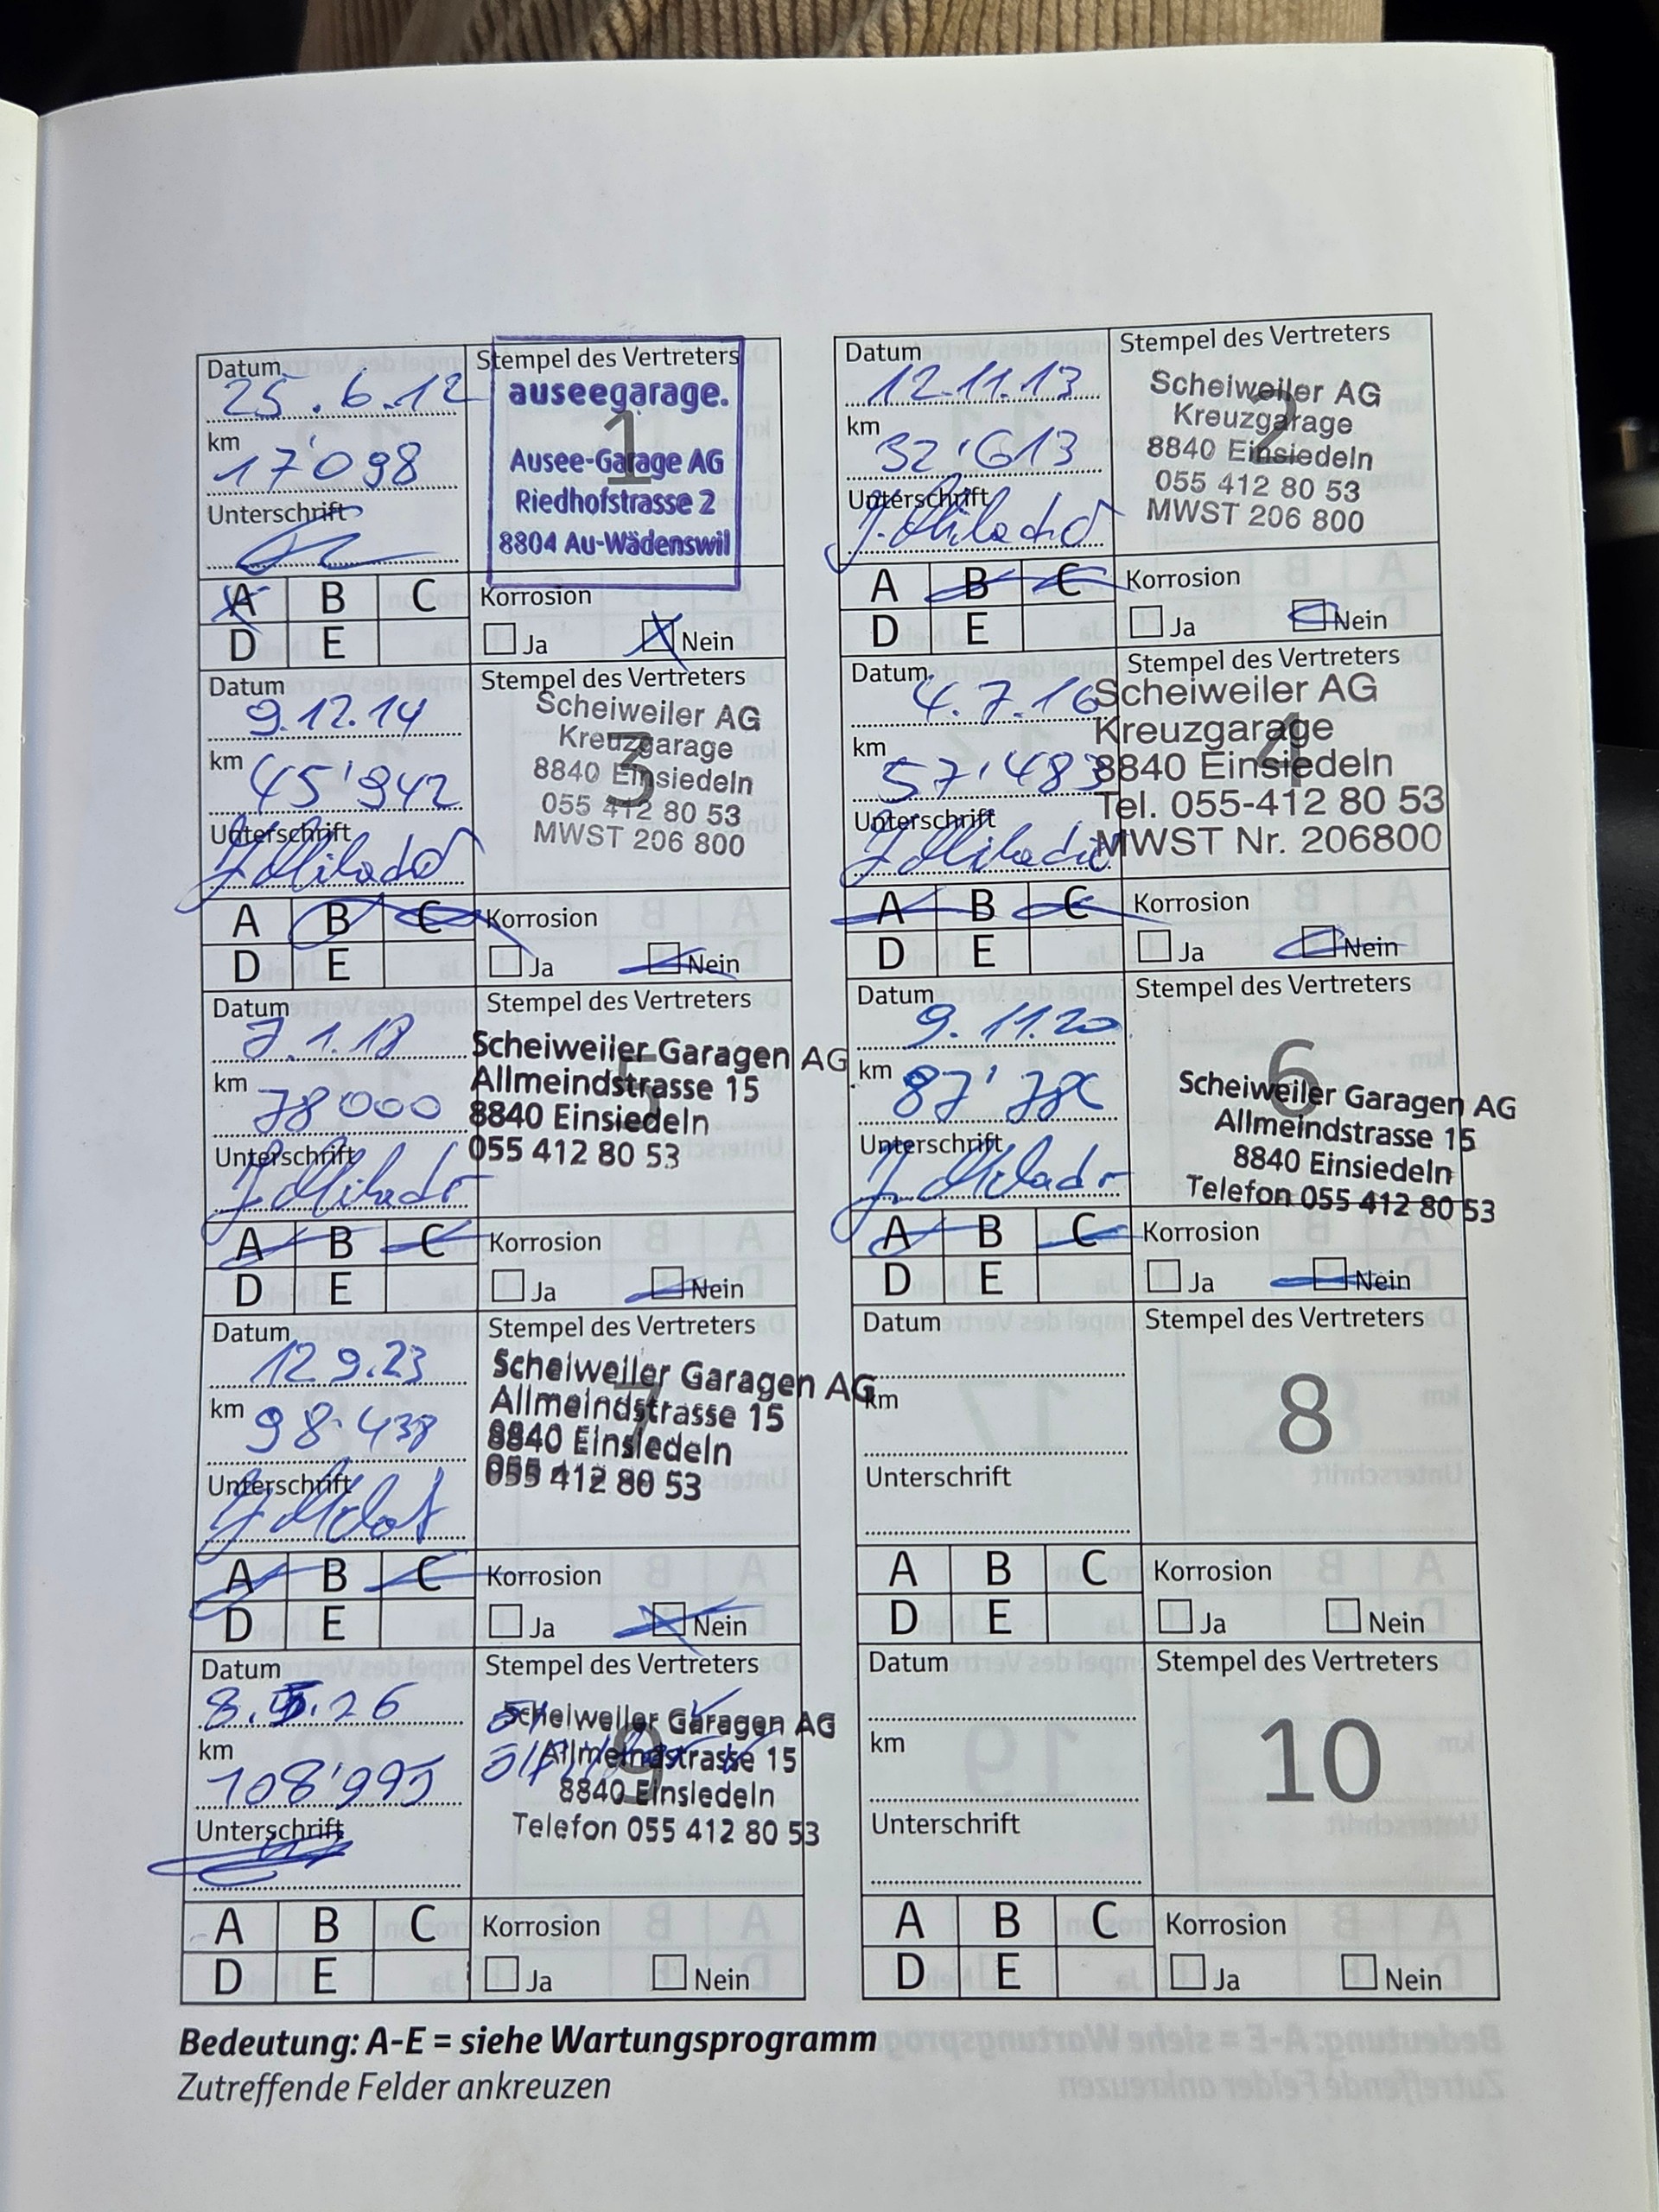 Datum
25.6.12
km
17'098
Unterschrift
Stempel des Vertreters
auseegarage.
1
Ausee-Garage AG
Riedhofstrasse 2
8804 Au-Wädenswil
A B C
D E
Korrosion
Ja Nein
Datum
12.11.13
km
32'613
Unterschrift
Stempel des Vertreters
2
Scheiweiler AG
Kreuzgarage
8840 Einsiedeln
055 412 80 53
MWST 206 800
A B C
D E
Korrosion
Ja Nein
Datum
9.12.14
km
45'942
Unterschrift
Stempel des Vertreters
3
Scheiweiler AG
Kreuzgarage
8840 Einsiedeln
055 412 80 53
MWST 206 800
A B C
D E
Korrosion
Ja Nein
Datum
4.7.16
km
57'483
Unterschrift
Stempel des Vertreters
4
Scheiweiler AG
Kreuzgarage
8840 Einsiedeln
Tel. 055-412 80 53
MWST Nr. 206800
A B C
D E
Korrosion
Ja Nein
Datum
7.1.18
km
78000
Unterschrift
Stempel des Vertreters
5
Scheiweiler Garagen AG
Allmeindstrasse 15
8840 Einsiedeln
055 412 80 53
A B C
D E
Korrosion
Ja Nein
Datum
9.11.20
km
Unterschrift
Stempel des Vertreters
6
Scheiweiler Garagen AG
Allmeindstrasse 15
8840 Einsiedeln
Telefon 055 412 80 53
A B C
D E
Korrosion
Ja Nein
Datum
12.9.23
km
98.438
Unterschrift
Stempel des Vertreters
7
Scheiweiler Garagen AG
Allmeindstrasse 15
8840 Einsiedeln
055 412 80 53
A B C
D E
Korrosion
Ja Nein
Datum
km
Unterschrift
Stempel des Vertreters
8
A B C
D E
Korrosion
Ja Nein
Datum
8.5.26
km
108'995
Unterschrift
Stempel des Vertreters
9
Scheiweiler Garagen AG
Allmeindstrasse 15
8840 Einsiedeln
Telefon 055 412 80 53
A B C
D E
Korrosion
Ja Nein
Datum
km
Unterschrift
Stempel des Vertreters
10
A B C
D E
Korrosion
Ja Nein
Bedeutung: A-E = siehe Wartungsprogramm
Zutreffende Felder ankreuzen